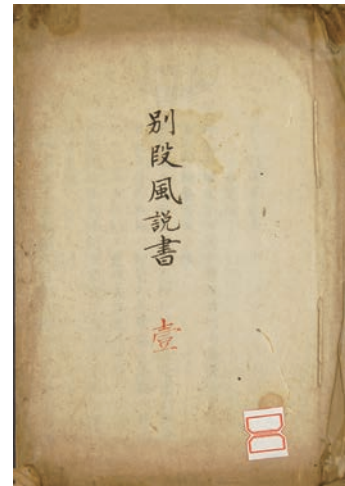 別段風説書
壹